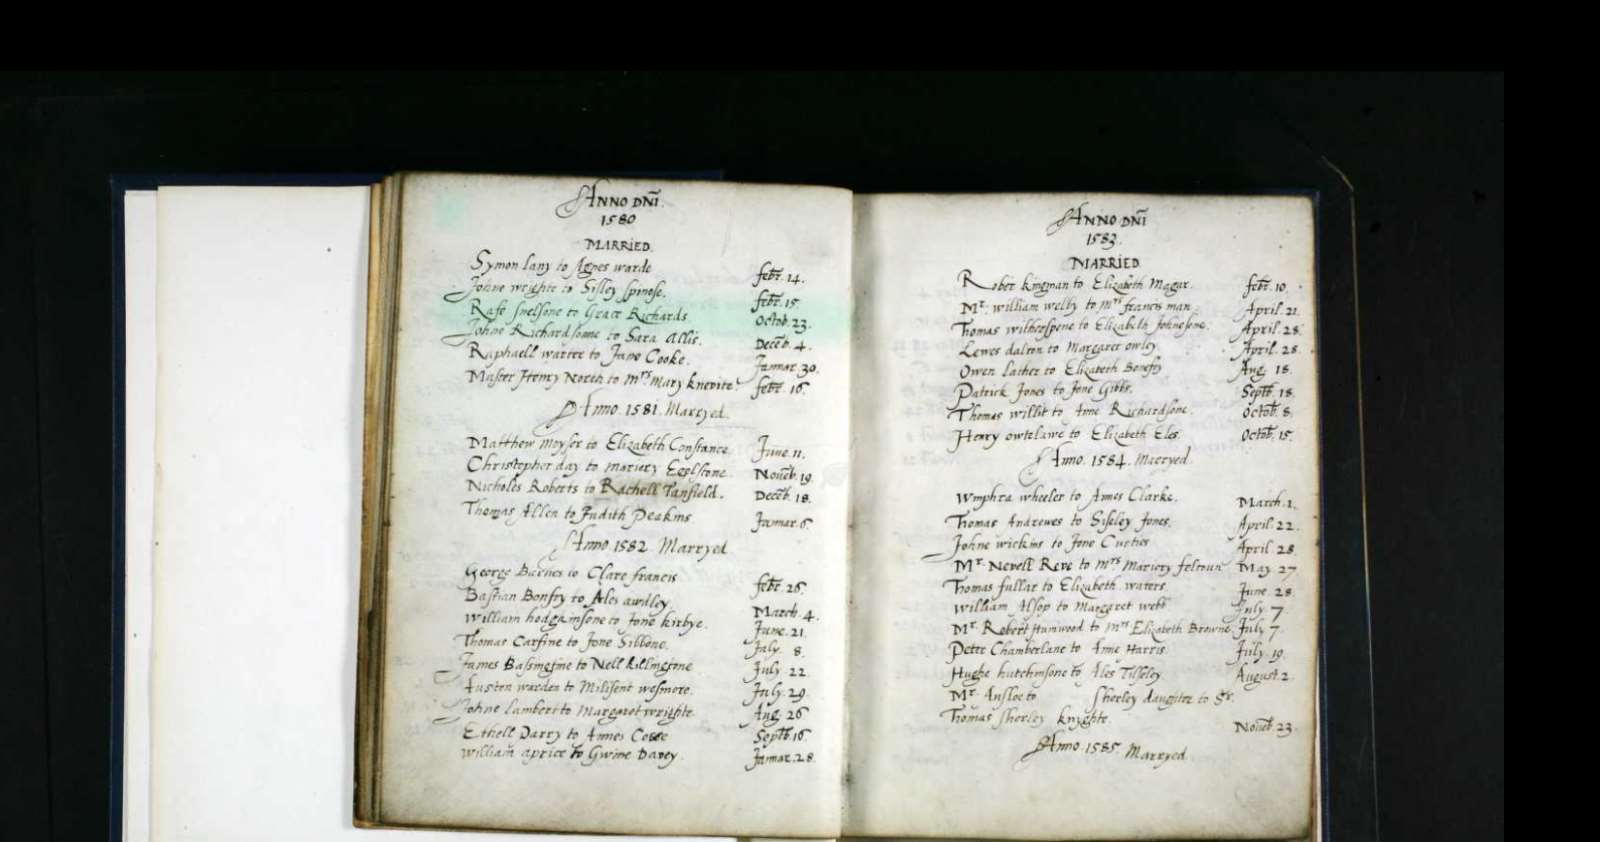 ANNO DNI.
1580
MARRIED.
Symon Lany to Agnes warde febr. 14.
Johne wrighte to Sisley spinose. febr. 15
Rafe snelsone to Grace Richards Octob. 23.
Johne Richardsonne to Sara Allis. Deceb. 4.
Raphaell warter to Jane Cooke. Januar. 30.
Master Henry North to mrs Mary knevite febr. 16.
Anno. 1581. Marryed.
Matthew moyser to Elizabeth Constance. June. 11.
Christopher day to mariery Egglstone. Noueb. 19
Nicholes Roberts to Rachell Tanfield. Deceb. 18.
Thomas Allen to Judith Deakins Januar. 6.
Anno 1582 Marryed
George Barnes to Clare francis febr. 26.
Bastian Bonfry to Ales awdley March. 4.
William hodgkinsone to Jone kirbye. June. 21.
Thomas Carfine to Jone Sibbone. July. 8.
James Bassingtine to Nell killingtone July 22
Austen warden to Milisent wesmore. July. 29.
Johne Lambert to Margaret wrighte Aug. 26
Ethell Darry to Annes Cosse Septb. 16.
William aprice to Gwine Davey. Januar. 28.
ANNO DNI
1583.
MARRIED
Rober kingman to Elizabeth Magar. febr. 10.
Mr. william welby to mrs francis man April. 21.
Thomas witherspene to Elizabeth Johnesone. April. 28.
Lewes dalton to Margaret owley. April. 28.
Owen Lather to Elizabeth Bonefry Aug. 18.
Patrick Jones to Jone Gibbs. Septb. 18.
Thomas willit to Anne Richardsone. Octob. 8.
Henry owtelawe to Elizabeth Eles. Octob. 15.
Anno. 1584. Marryed.
Wmphra wheeler to Annes Clarke. March. 1.
Thomas Andrewes to Siseley Jones. April. 22.
Johne wickins to Jone Curties April. 28.
Mr. Nevell Reve to Mrs Mariery feltrun May 27
Thomas fullar to Elizabeth. waters June. 28
William Alsop to Margaret webb July. 7.
Mr. Robert Hunwood to mrs Elizabeth Browne. July 7.
Peter Chamberlane to Anne Harris July. 19.
Hughe hutchinsone to Ales Tilseley. August. 2.
Mr. Ansloe to Sherley daughter to Sr.
Thomas Sherley knyghte. Noueb. 23.
Anno. 1585. Marryed